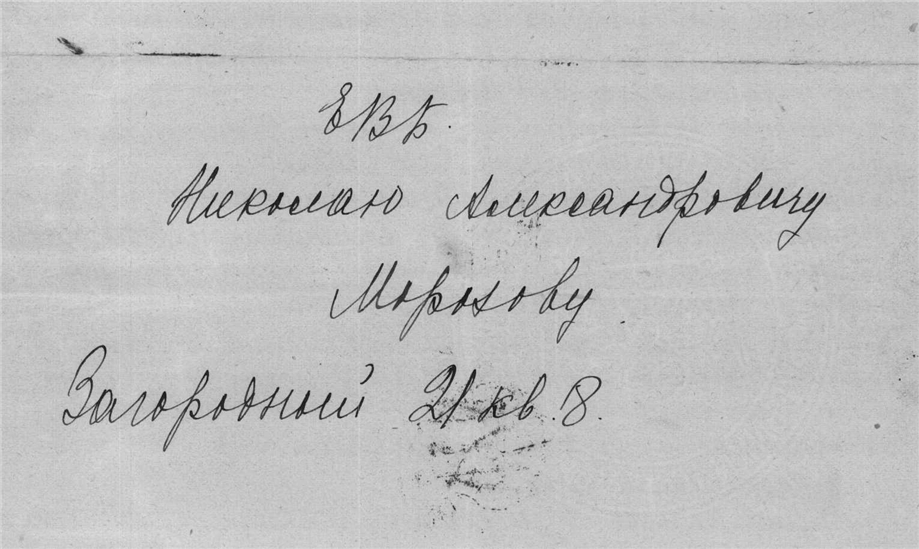 ЕВБ.
Николаю Александровичу
Морозову
Загородный 21 кв. 8.